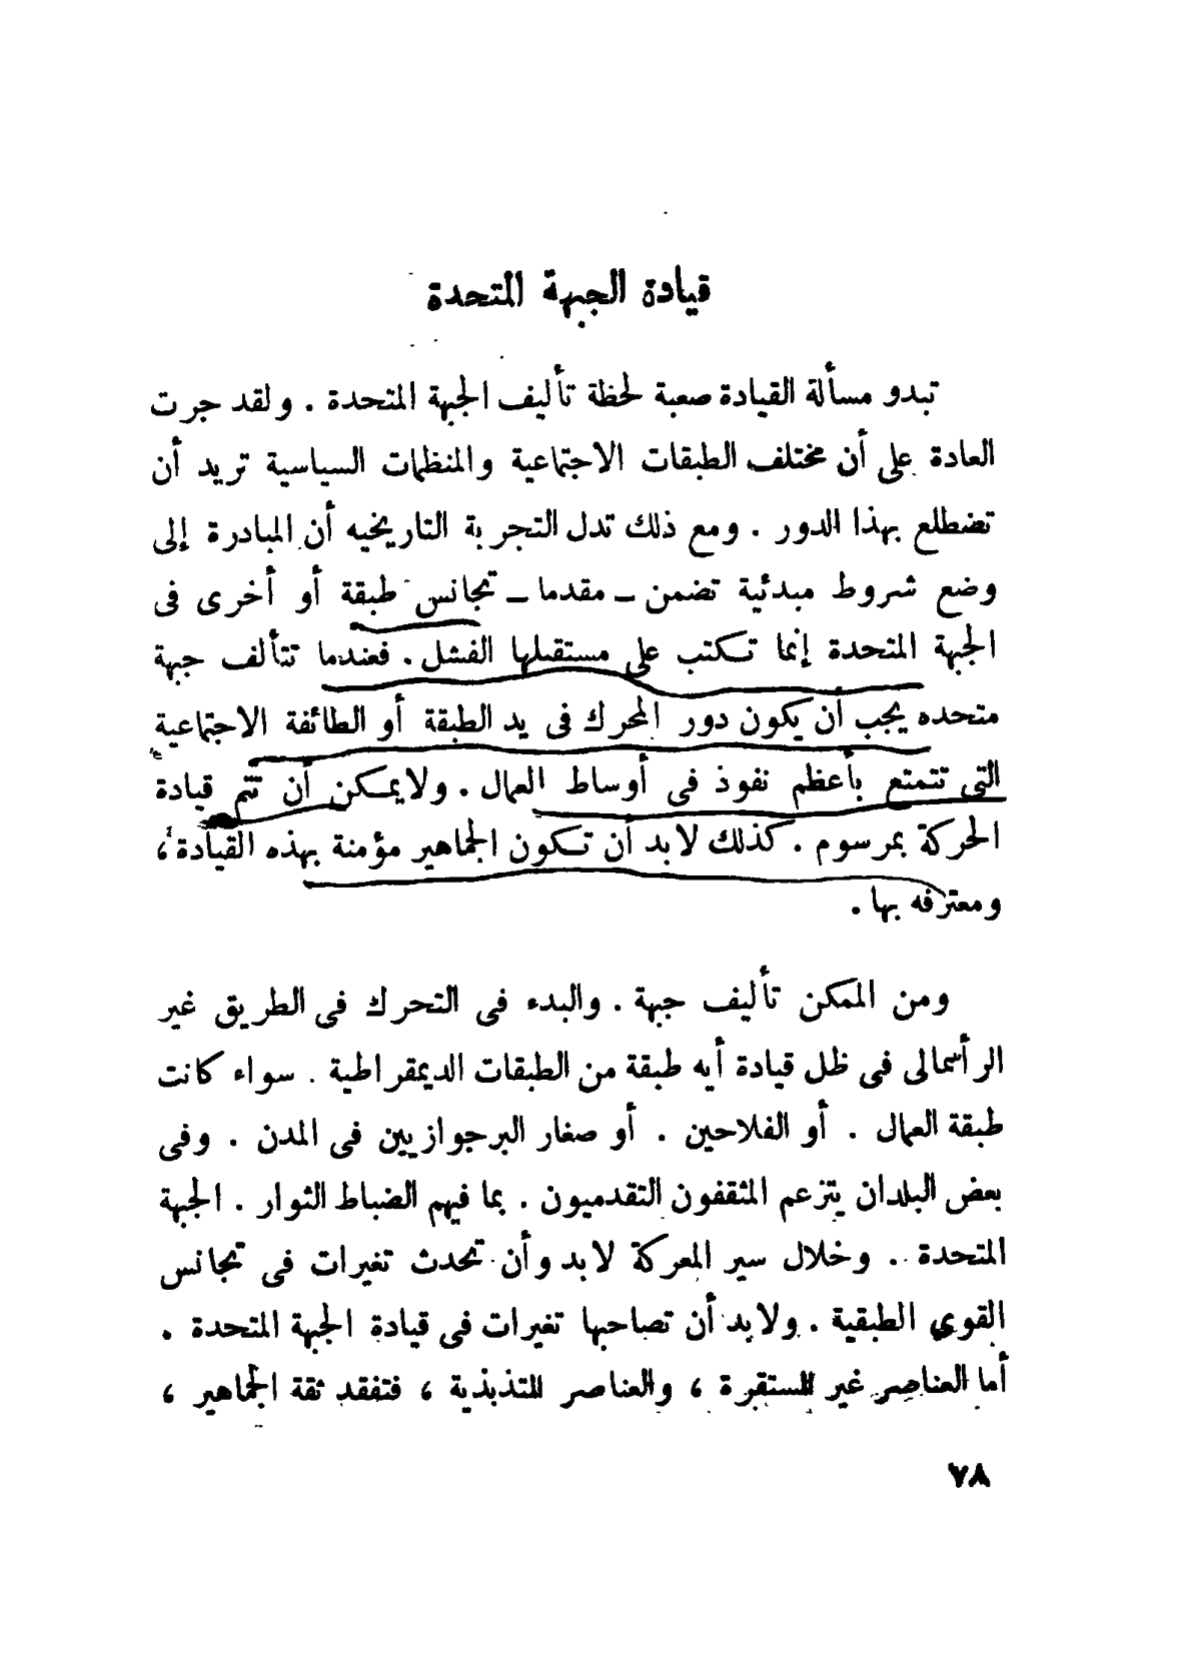 قيادة الجبهة المتحدة
تبدو مسألة القيادة صعبة لحظة تأليف الجبهة المتحدة . ولقد جرت
العادة على أن مختلف الطبقات الاجتماعية والمنظمات السياسية تريد أن
تضطلع بهذا الدور . ومع ذلك تدل التجربة التاريخيه أن المبادرة إلى
وضع شروط مبدئية تضمن – مقدما – تجانس طبقة أو أخرى فى
الجبهة المتحدة إنما تكتب على مستقبلها الفشل . فعندما تتألف جبهة
متحده يجب أن يكون دور المحرك فى يد الطبقة أو الطائفة الاجتماعية
التى تتمتع بأعظم نفوذ فى أوساط العمال . ولا يمكن أن تتم قيادة
الحركة بمرسوم . كذلك لا بد أن تكون الجماهير مؤمنة بهذه القيادة ،
ومعترفه بها .
ومن الممكن تأليف جبهة . والبدء فى التحرك فى الطريق غير
الرأسمالى فى ظل قيادة أيه طبقة من الطبقات الديمقراطية . سواء كانت
طبقة العمال . أو الفلاحين . أو صغار البرجوازيين فى المدن . وفى
بعض البلدان يتزعم المثقفون التقدميون . بما فيهم الضباط الثوار . الجبهة
المتحدة . وخلال سير المعركة لا بد وأن تحدث تغيرات فى تجانس
القوى الطبقية . ولا بد أن تصاحبها تغيرات فى قيادة الجبهة المتحدة .
أما العناصر غير المستقرة ، والعناصر المتذبذبة ، فتفقد ثقة الجماهير ،
٧٨